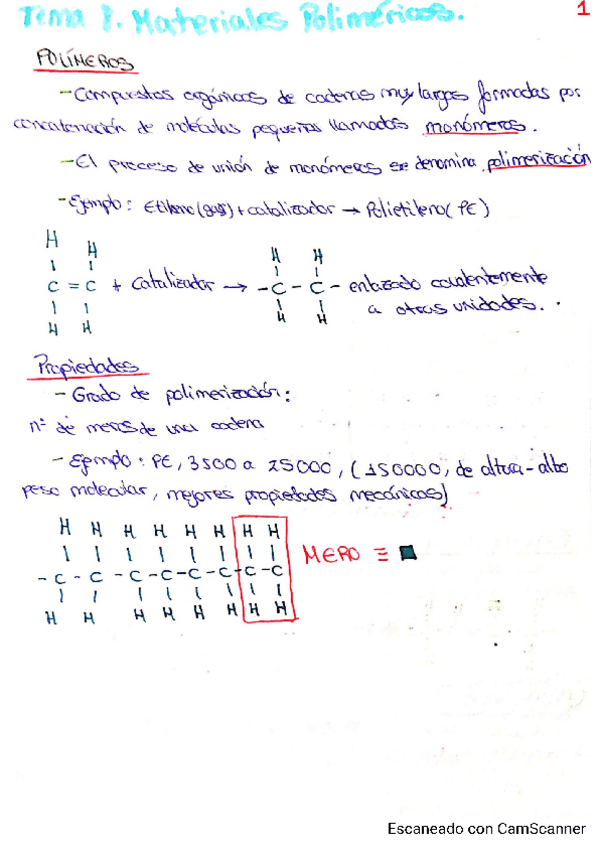 Tema 8. Materiales Poliméricos.
1
POLÍMEROS
- Compuestos orgánicos de cadenas muy largas formadas por
concatenación de moléculas pequeñas llamadas monómeros.
- El proceso de unión de monómeros se denomina polimerización
- Ejemplo: Etileno (gas) + catalizador → Polietileno (PE)
H H H H
C = C + catalizador → - C - C - enlazado covalentemente
H H H H a otras unidades.
Propiedades
- Grado de polimerización:
nº de meros de una cadena
- Ejemplo: PE, 3500 a 25000, (150000, de altura-alto
peso molecular, mejores propiedades mecánicas)
H H H H H H H H
- C - C - C - C - C - C - C - C MERO ≡ ■
H H H H H H H H
Escaneado con CamScanner